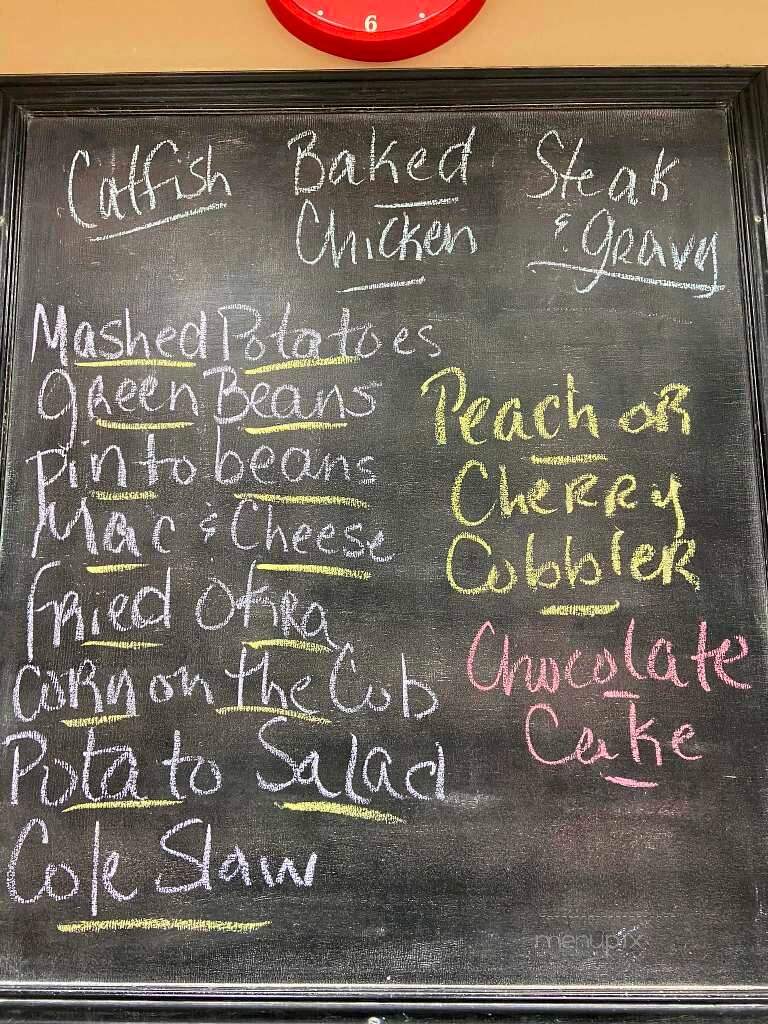 6
Catfish
Baked
Chicken
Steak
& gravy
Mashed Potatoes
green Beans
pinto beans
Mac & Cheese
fried okra
Corn on the Cob
Potato Salad
Cole Slaw
Peach or
Cherry
Cobbler
Chocolate
Cake
menupix